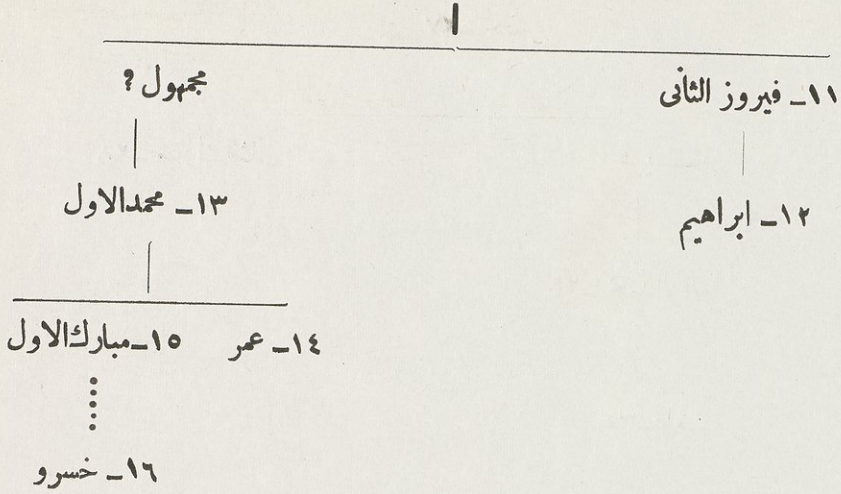 ١١ـ فيروز الثانى
مجهول ؟
١٢ـ ابراهيم
١٣ـ محمدالاول
١٤ـ عمر
١٥ـ مبارك الاول
١٦ـ خسرو